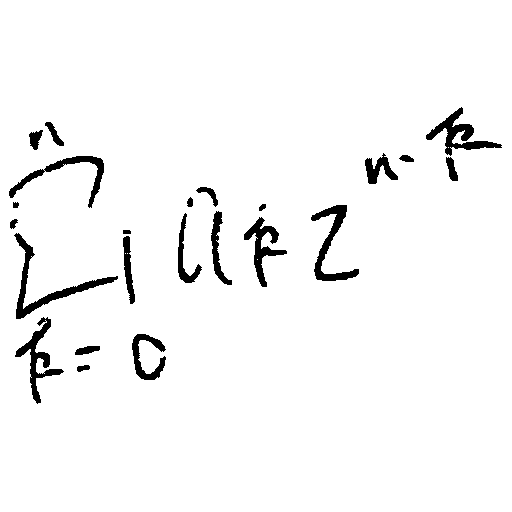 \sum_{k=0}^{n} a_k z^{n-k}